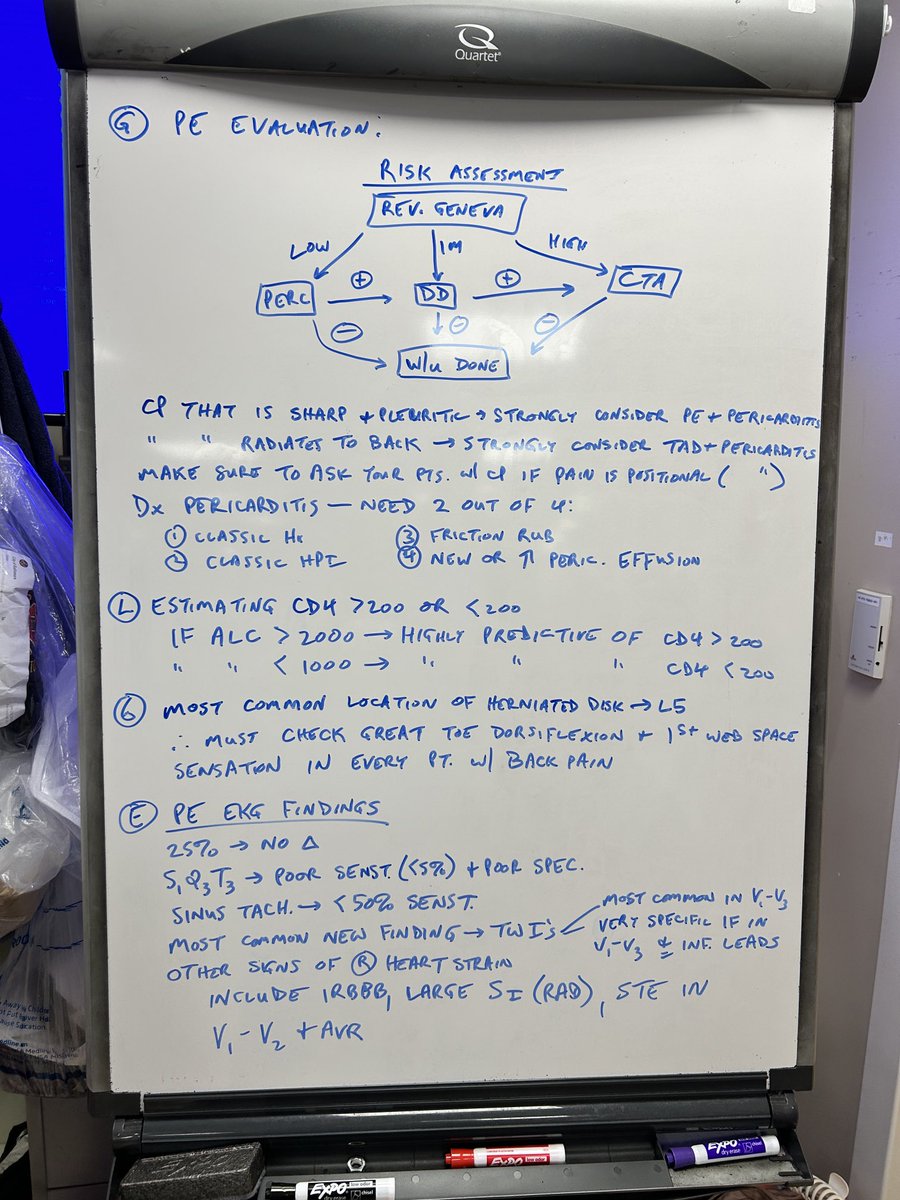 Quartet
G PE EVALUATION:
RISK ASSESSMENT
REV. GENEVA
LOW IM HIGH
PERC + DD + CTA
- - -
W/U DONE
CP THAT IS SHARP + PLEURITIC → STRONGLY CONSIDER PE + PERICARDITIS
" " RADIATES TO BACK → STRONGLY CONSIDER TAD + PERICARDITIS
MAKE SURE TO ASK YOUR PTS. W/ CP IF PAIN IS POSITIONAL ( " )
DX PERICARDITIS — NEED 2 OUT OF 4:
① CLASSIC ③ FRICTION RUB
② CLASSIC HPI ④ NEW OR ↑ PERIC. EFFUSION
L ESTIMATING CD4 >200 OR <200
IF ALC > 2000 → HIGHLY PREDICTIVE OF CD4 > 200
" " < 1000 → " " " CD4 < 200
6 MOST COMMON LOCATION OF HERNIATED DISK → L5
∴ MUST CHECK GREAT TOE DORSIFLEXION + 1ST WEB SPACE
SENSATION IN EVERY PT. W/ BACK PAIN
E PE EKG FINDINGS
25% → NO Δ
S1Q3T3 → POOR SENST. (<5%) + POOR SPEC.
SINUS TACH. → <50% SENST.
MOST COMMON NEW FINDING → TWI's
MOST COMMON IN V1-V3
VERY SPECIFIC IF IN
V1-V3 & INF. LEADS
OTHER SIGNS OF R HEART STRAIN
INCLUDE IRBBB, LARGE SI (RAD), STE IN
V1 - V2 + AVR
EXPO low odor
EXPO
dry erase
EXPO low odor
dry erase chisel